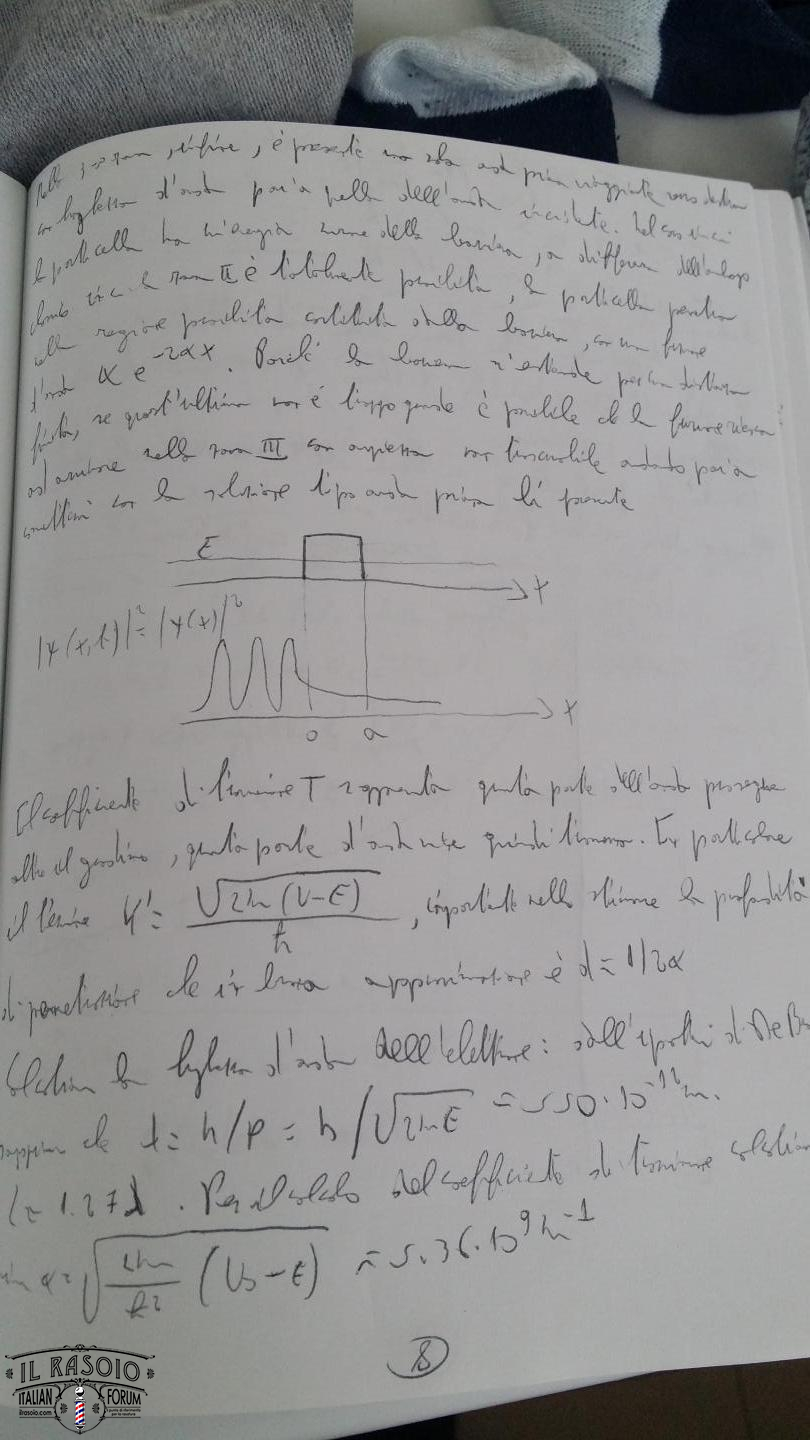 Nella zona, infine, è presente una onda piana viaggiante verso destra
con lunghezza d'onda pari a quella dell'onda incidente. Nel caso in cui
la particella ha un'energia minore della barriera, a differenza dell'analogo
classico in cui la zona II è totalmente proibita, la particella penetra
nella regione proibita costituita dalla barriera, con una funzione
d'onda α e^-2αx. Poiché la barriera s'estende per una distanza
finita, se quest'ultima non è troppo grande è possibile che la funzione
ad arrivare nella zona III con ampiezza non trascurabile andando poi a
connettersi con la soluzione tipo onda piana lì presente
E
x
|ψ(x,t)|² = |ψ(x)|²
x
0 a
Il coefficiente di trasmissione T rappresenta quanta parte dell'onda prosegue
oltre il gradino, quanta parte d'onda viene quindi trasmessa. In particolare
il termine K' = √2m(V-E) / ħ, importante nello stimare la profondità
di penetrazione che in buona approssimazione è d = 1/2α
Calcoliamo la lunghezza d'onda dell'elettrone: dall'ipotesi di De Br
sappiamo che λ = h/p = h/√2mE = 550·10^-12 m.
= 1.27λ. Per il calcolo del coefficiente di trasmissione calcoliamo
α = √2m/ħ² (V0-E) = 5.36·10^9 m^-1
8
IL RASOIO
ITALIAN FORUM
ilrasoio.com